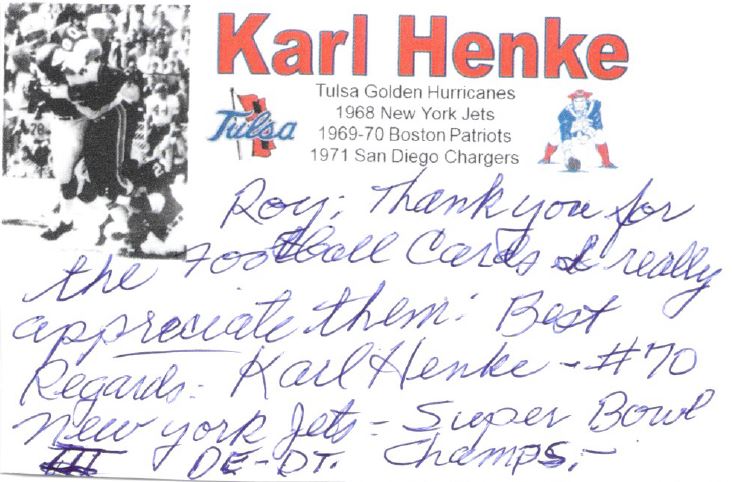 Karl Henke
Tulsa Golden Hurricanes
1968 New York Jets
Tulsa
1969-70 Boston Patriots
1971 San Diego Chargers
Roy; Thank you for
the Football Cards I really
appreciate them: Best
Regards - Karl Henke - #70
New York Jets = Super Bowl
III DE-DT. Champs. -